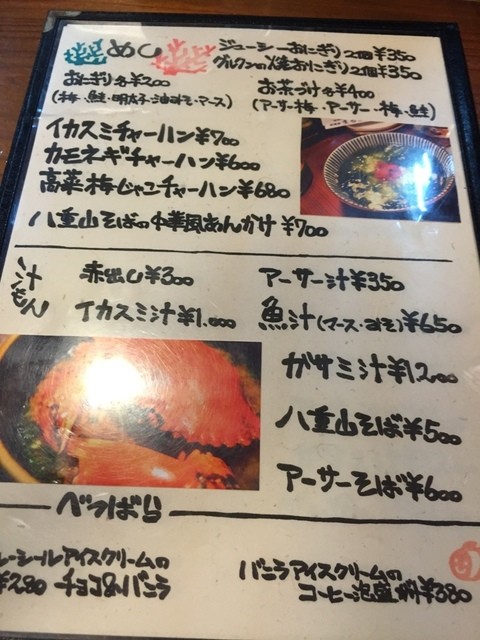 めし
ジューシーおにぎり2個¥350
グルクンの焼おにぎり2個¥350
おにぎり各¥200
(梅・鮭・明太子・油みそ・マース)
お茶づけ各¥400
(アーサー梅・アーサー・梅・鮭)
イカスミチャーハン¥700
カモネギチャーハン¥600
高菜梅じゃこチャーハン¥680
八重山そばの中華風あんかけ ¥700
汁もん
赤出し¥300
アーサー汁¥350
イカスミ汁¥1,000
魚汁(マース・みそ)¥650
ガサミ汁¥1,200
八重山そば¥500
アーサーそば¥600
べつばら
ルーシールアイスクリームの
¥280 チョコ&バニラ
バニラアイスクリームの
コーヒー泡盛 ¥380